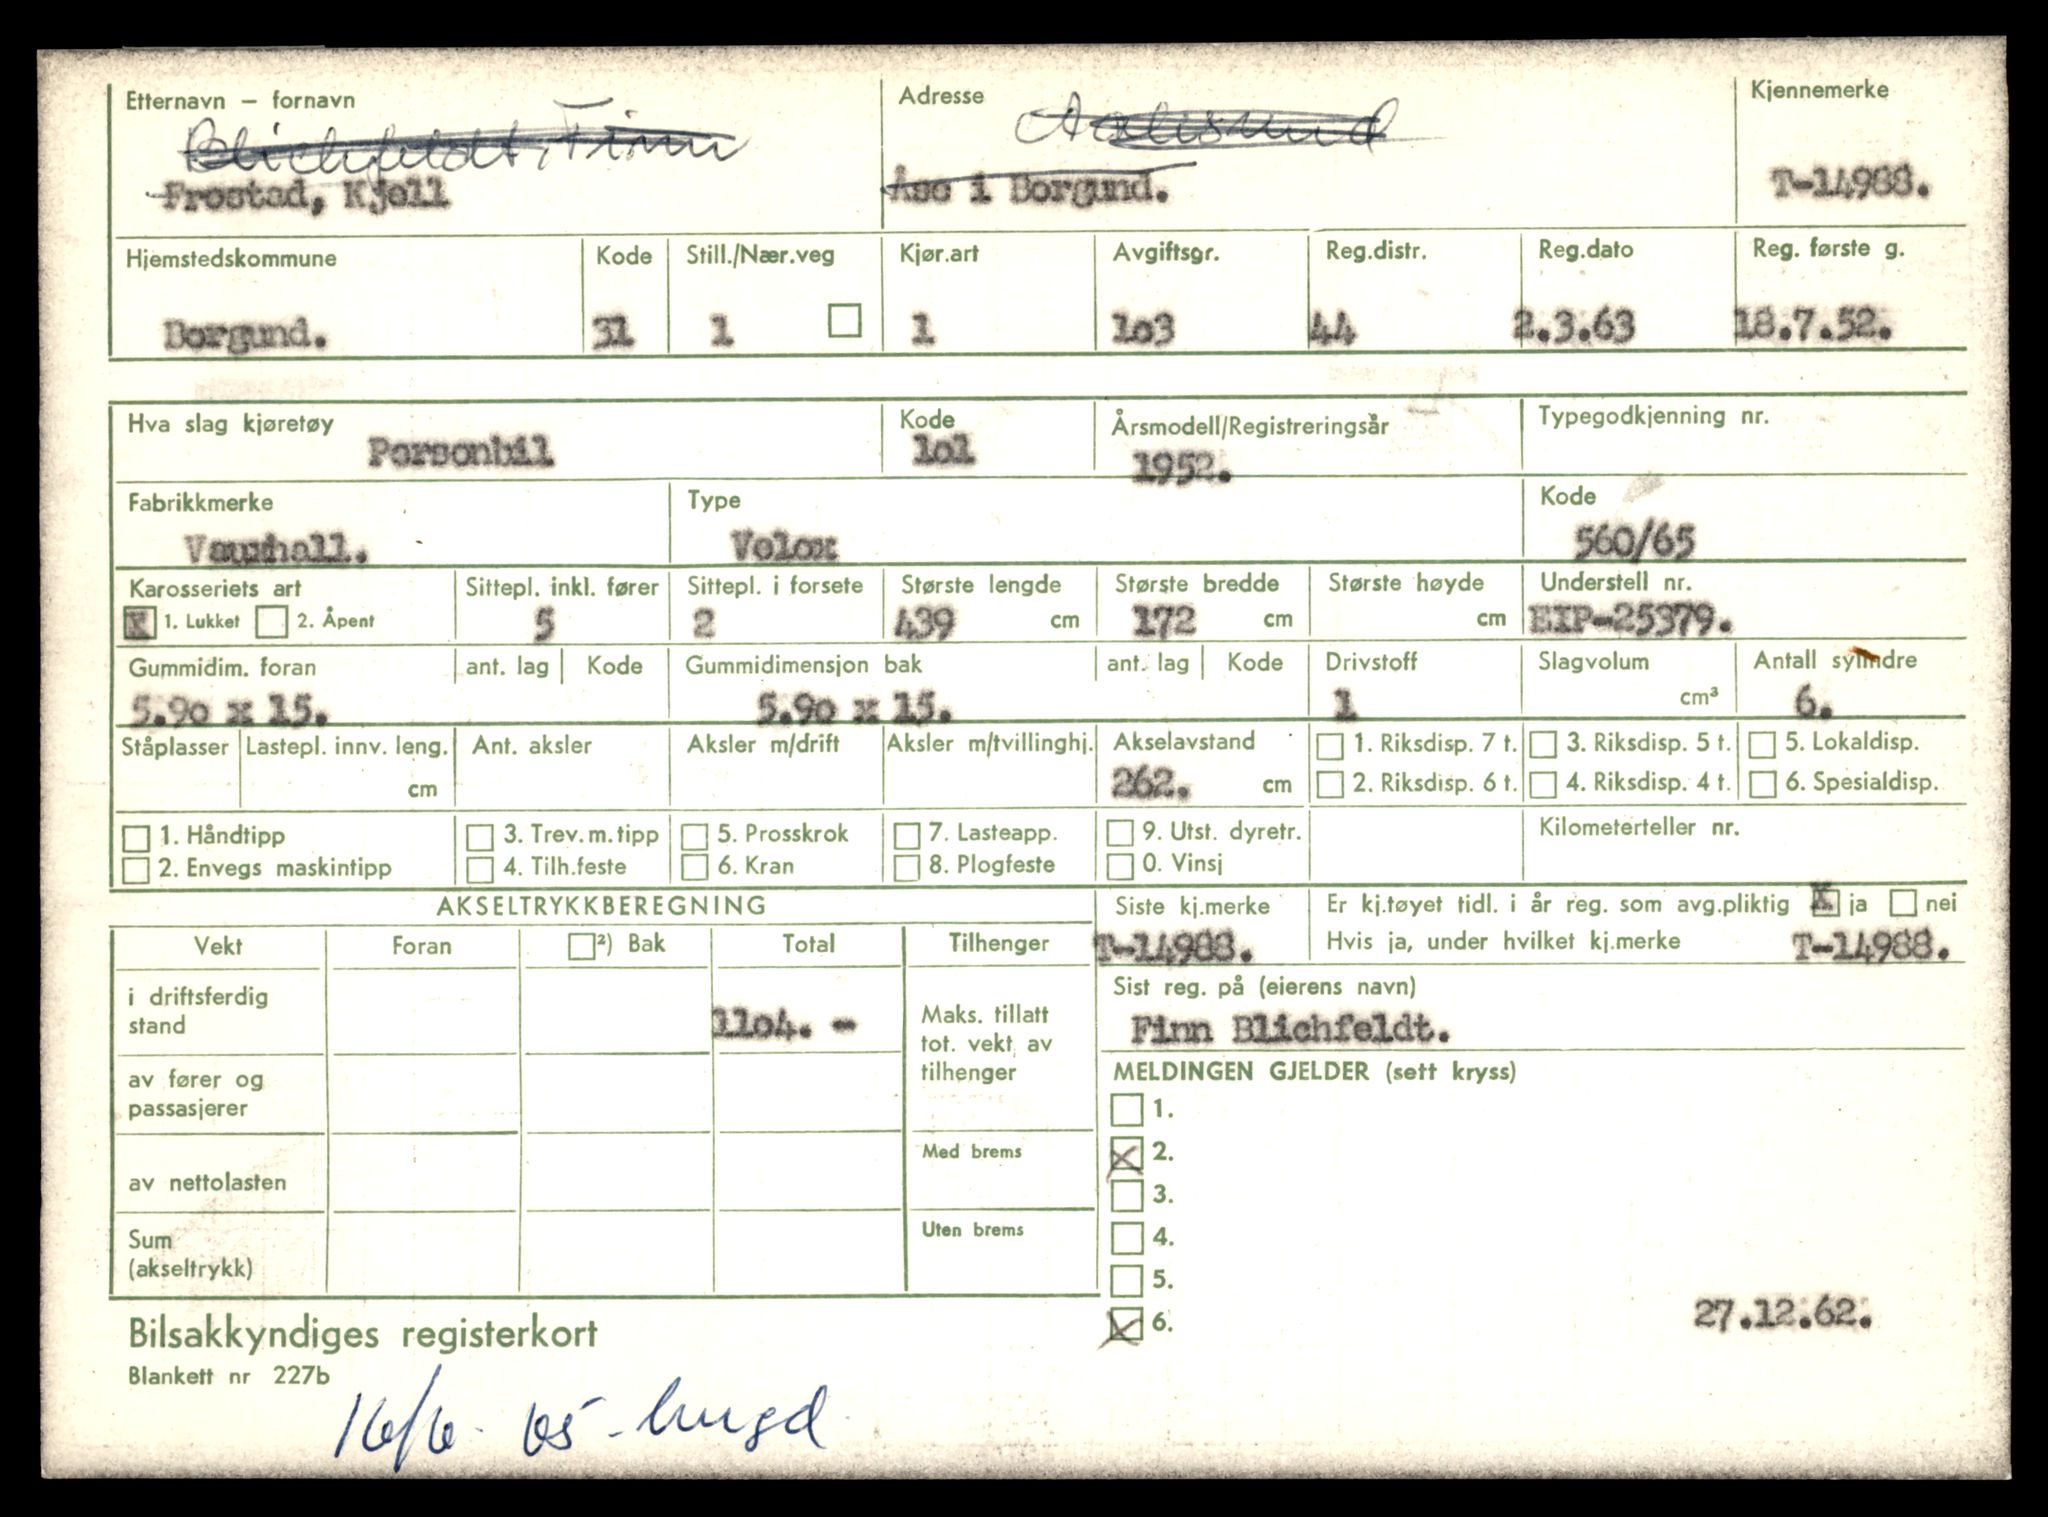 Etternavn – fornavn Adresse Kjennemerke
Blichfeldt, Finn Aalesund
Frostad, Kjell Åse i Borgund. T-14988.
Hjemstedskommune Kode Still./Nær.veg Kjør.art Avgiftsgr. Reg.distr. Reg.dato Reg. første g.
Borgund. 31 1 1 1o3 44 2.3.63 18.7.52.
Hva slag kjøretøy Kode Årsmodell/Registreringsår Typegodkjenning nr.
Personbil 1o1 1952.
Fabrikkmerke Type Kode
Vauxhall. Velox 560/65
Karosseriets art Sittepl. inkl. fører Sittepl. i forsete Største lengde Største bredde Største høyde Understell nr.
X 1. Lukket 2. Åpent 5 2 439 cm 172 cm cm EIP-25379.
Gummidim. foran ant. lag Kode Gummidimensjon bak ant. lag Kode Drivstoff Slagvolum Antall sylindre
5.9o x 15. 5.9o x 15. 1 cm³ 6.
Ståplasser Lastepl. innv. leng. Ant. aksler Aksler m/drift Aksler m/tvillinghj. Akselavstand 1. Riksdisp. 7 t. 3. Riksdisp. 5 t. 5. Lokaldisp.
cm 262. cm 2. Riksdisp. 6 t. 4. Riksdisp. 4 t. 6. Spesialdisp.
1. Håndtipp 3. Trev.m.tipp 5. Prosskrok 7. Lasteapp. 9. Utst. dyretr. Kilometerteller nr.
2. Envegs maskintipp 4. Tilh.feste 6. Kran 8. Plogfeste 0. Vinsj
AKSELTRYKKBEREGNING Siste kj.merke Er kj.tøyet tidl. i år reg. som avg.pliktig X ja nei
Vekt Foran ²) Bak Total Tilhenger T-14988. Hvis ja, under hvilket kj.merke T-14988.
i driftsferdig stand 11o4. - Maks. tillatt tot. vekt av tilhenger
Sist reg. på (eierens navn)
Finn Blichfeldt.
av fører og passasjerer
MELDINGEN GJELDER (sett kryss)
1.
Med brems X 2.
av nettolasten 3.
Uten brems 4.
Sum (akseltrykk) 5.
X 6. 27.12.62.
Bilsakkyndiges registerkort
Blankett nr 227b
16/6- 65-